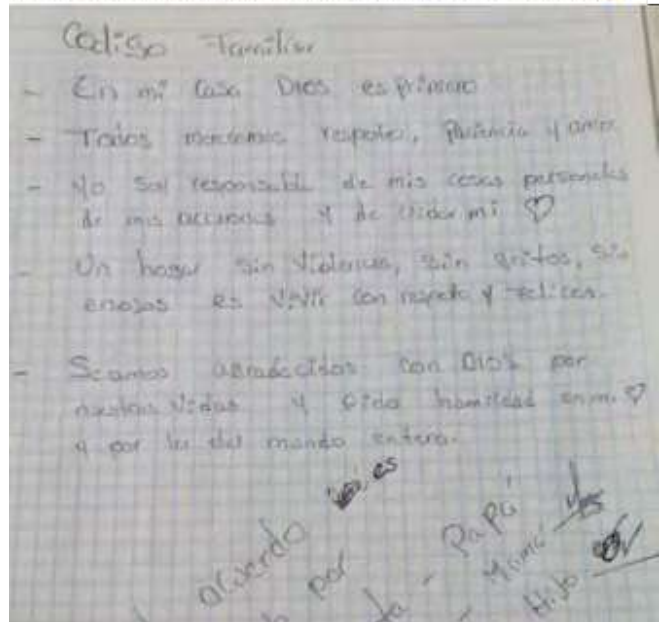 Codigo Familiar
- En mi Casa Dios es primero
- Todos merecemos respeto, Paciencia y amor
- Yo Soi responsable de mis cosas personales
de mis acciones y de cuidar mi ♡
- Un hogar sin violencia, sin gritos, sin
enojos es vivir con respeto y felices.
- Seamos agradecidos con Dios por
nuestras vidas y pido humildad en mi ♡
y por la del mundo entero.
acuerdo
por
- Papá
- Mamá
Hijo